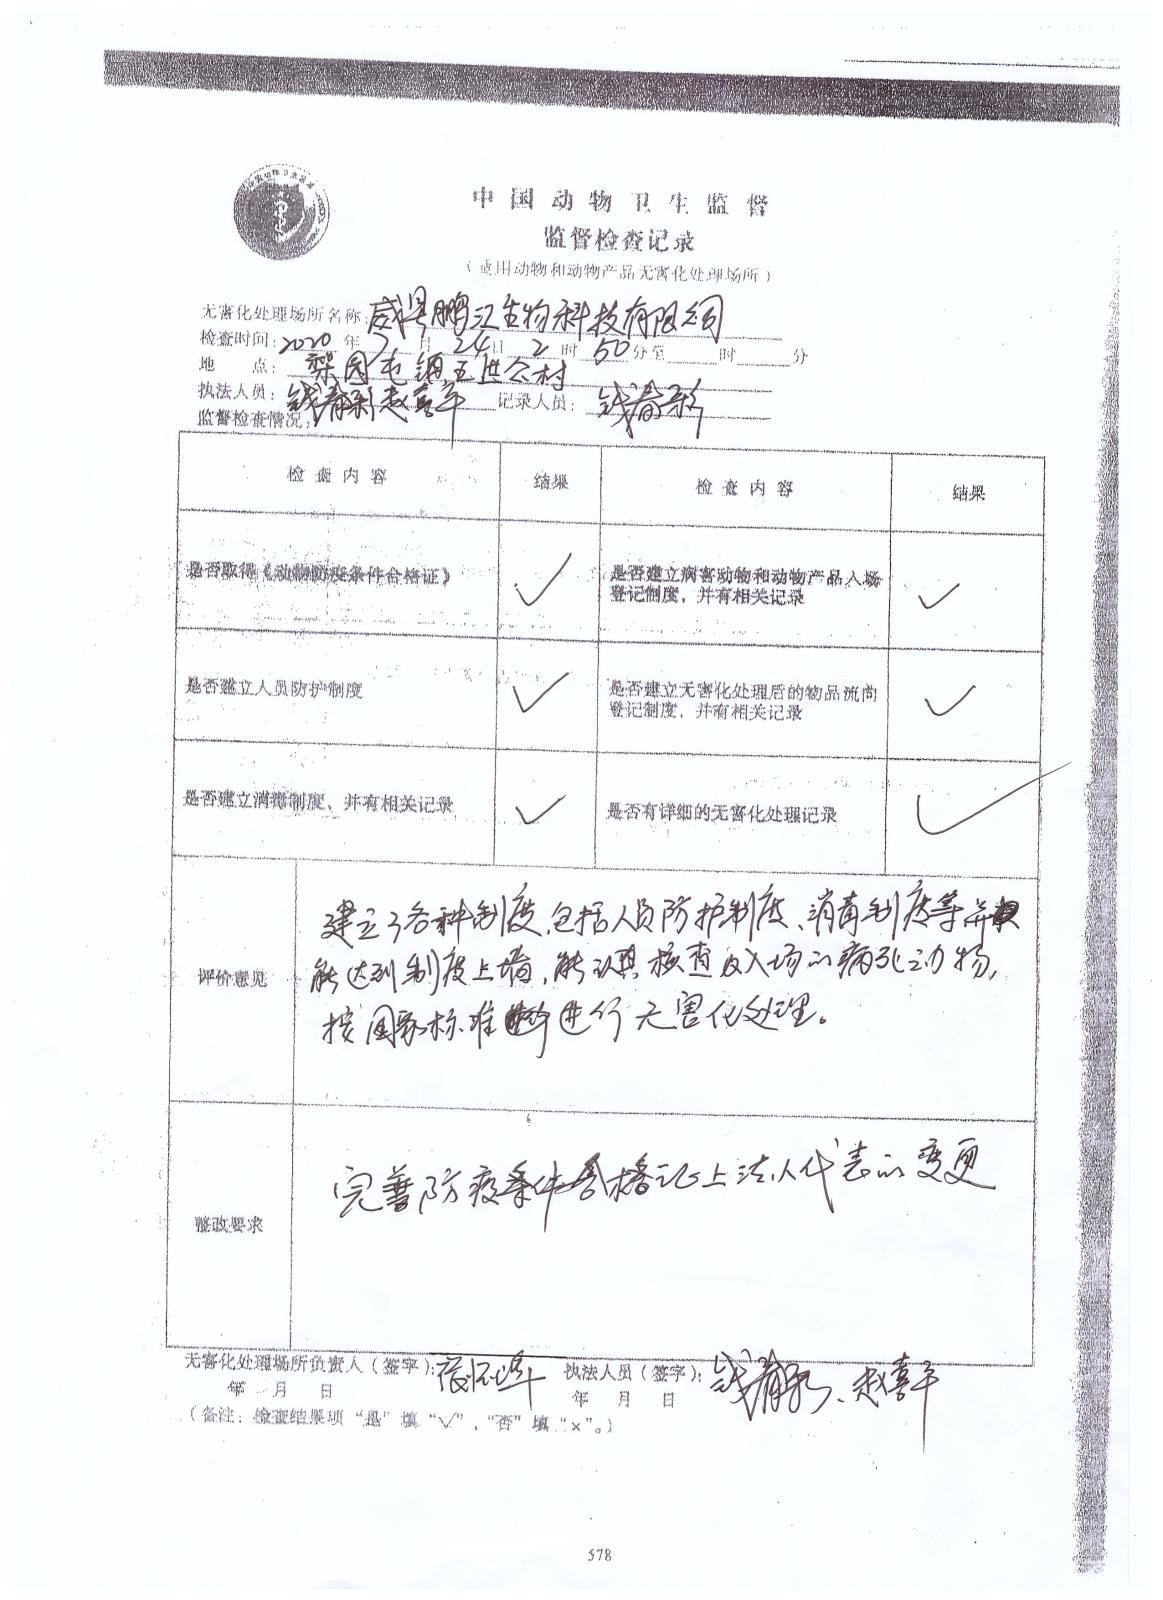 中国动物卫生监督
监督检查记录
（适用动物和动物产品无害化处理场所）
无害化处理场所名称：威县鹏江生物科技有限公司
检查时间：2020年7月24日2时50分至 时 分
地 点：梨园屯镇五洪仓村
执法人员：钱春彩 赵喜平 记录人员：钱春彩
监督检查情况：
检查内容 结果 检查内容 结果
是否取得《动物防疫条件合格证》 ✓ 是否建立病害动物和动物产品入场
登记制度，并有相关记录 ✓
是否建立人员防护制度 ✓ 是否建立无害化处理后的物品流向
登记制度，并有相关记录 ✓
是否建立消毒制度，并有相关记录 ✓ 是否有详细的无害化处理记录 ✓
评价意见
建立了各种制度，包括人员防护制度、消毒制度等并
能达到制度上墙，能认真核查收入场的病死动物，
按国家标准进行无害化处理。
整改要求
完善防疫条件合格证上法人代表的变更
无害化处理场所负责人（签字）： 执法人员（签字）：钱春彩、赵喜平
年 月 日 年 月 日
（备注：检查结果项“是”填“√”，“否”填“×”。）
578